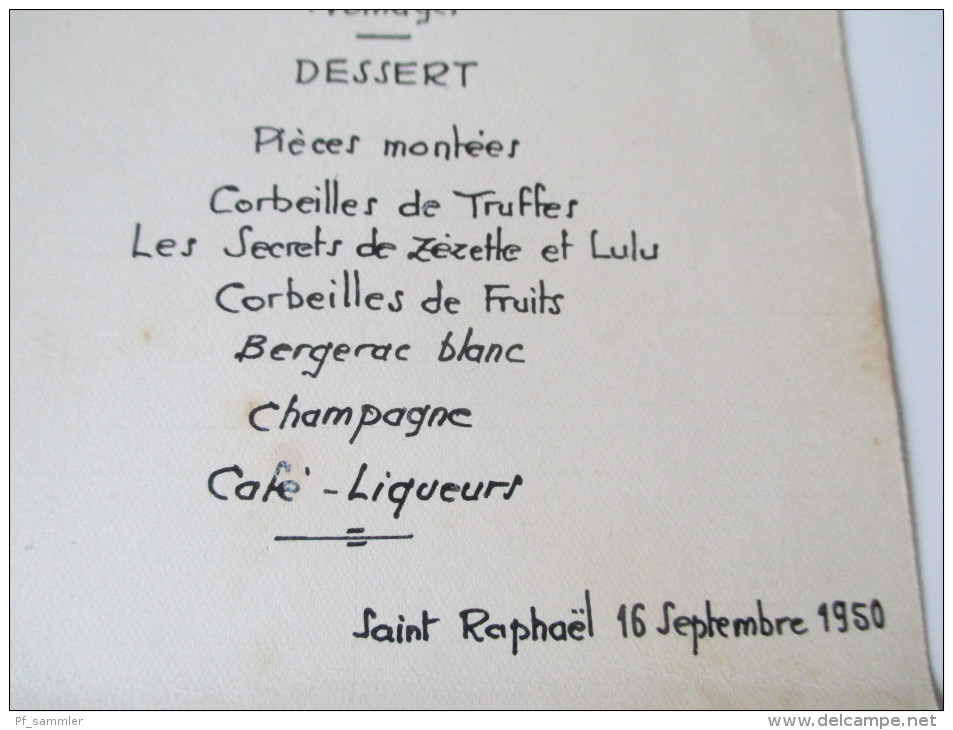 DESSERT
Pièces montées
Corbeilles de Truffes
Les Secrets de Zézette et Lulu
Corbeilles de Fruits
Bergerac blanc
Champagne
Café - Liqueurs
Saint Raphaël 16 Septembre 1950
Pf_sammler
www.delcampe.net